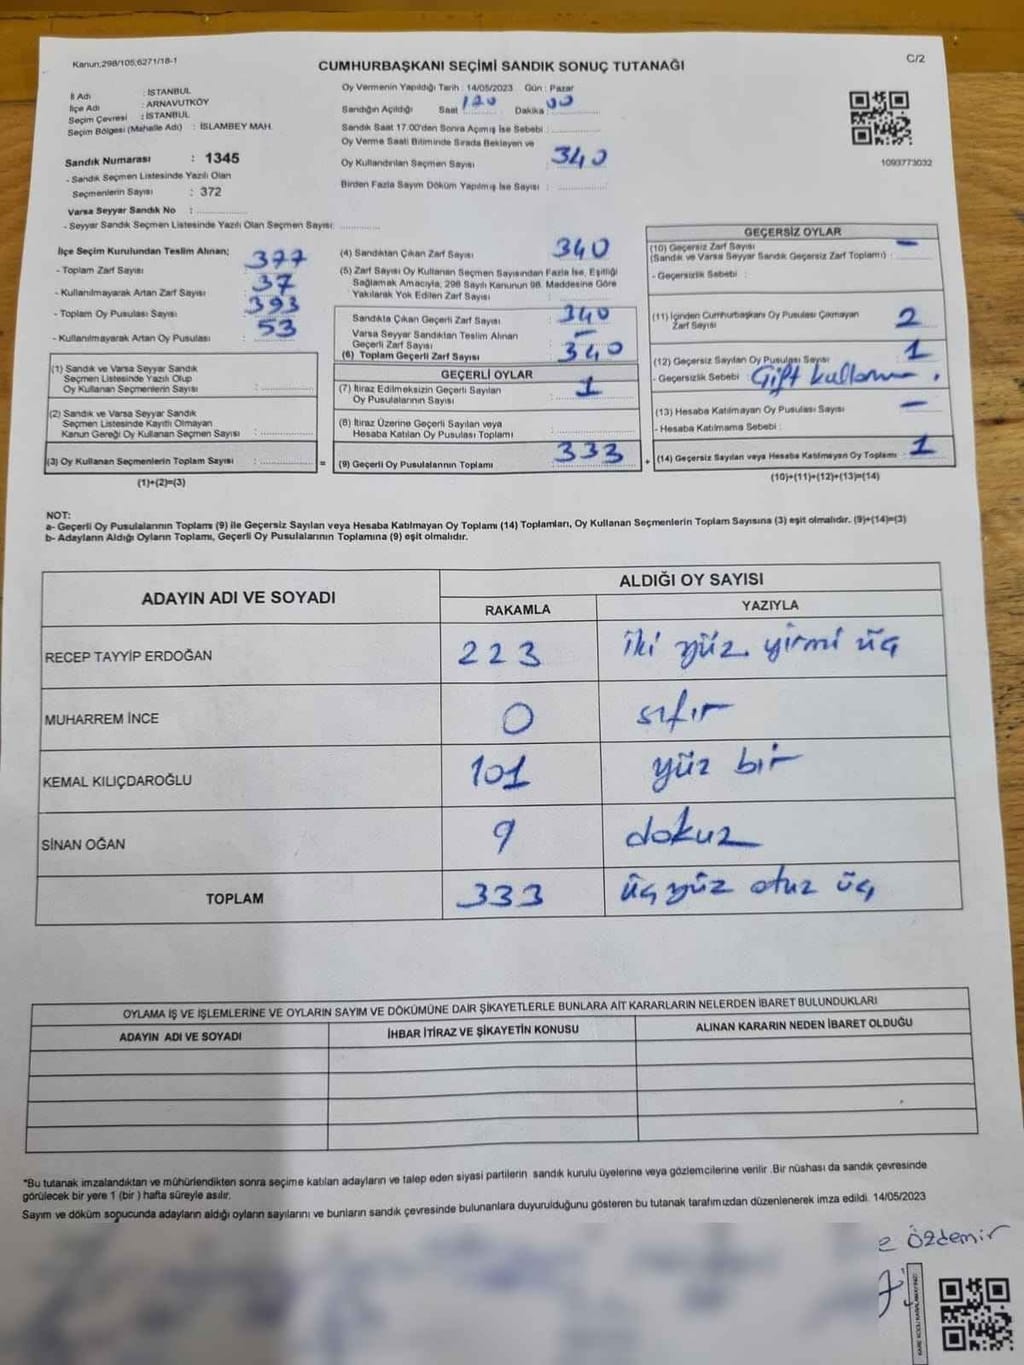 Kanun;298/105;6271/18-1
C/2
CUMHURBAŞKANI SEÇİMİ SANDIK SONUÇ TUTANAĞI
İl Adı : İSTANBUL
İlçe Adı : ARNAVUTKÖY
Seçim Çevresi : İSTANBUL
Seçim Bölgesi (Mahalle Adı) : İSLAMBEY MAH.
Sandık Numarası : 1345
- Sandık Seçmen Listesinde Yazılı Olan
Seçmenlerin Sayısı : 372
Varsa Seyyar Sandık No :
- Seyyar Sandık Seçmen Listesinde Yazılı Olan Seçmen Sayısı:
Oy Vermenin Yapıldığı Tarih : 14/05/2023 Gün : Pazar
Sandığın Açıldığı Saat : Dakika : 00
Sandık Saat 17.00'den Sonra Açımış İse Sebebi :
Oy Verme Saati Bitiminde Sırada Bekleyen ve
Oy Kullandırılan Seçmen Sayısı : 340
Birden Fazla Sayım Döküm Yapılmış İse Sayısı :
1093773032
İlçe Seçim Kurulundan Teslim Alınan;
- Toplam Zarf Sayısı : 377
- Kullanılmayarak Artan Zarf Sayısı : 37
- Toplam Oy Pusulası Sayısı : 393
- Kullanılmayarak Artan Oy Pusulası : 53
(1) Sandık ve Varsa Seyyar Sandık
Seçmen Listesinde Yazılı Olup
Oy Kullanan Seçmenlerin Sayısı :
(2) Sandık ve Varsa Seyyar Sandık
Seçmen Listesinde Kayıtlı Olmayan
Kanun Gereği Oy Kullanan Seçmen Sayısı :
(3) Oy Kullanan Seçmenlerin Toplam Sayısı :
(1)+(2)=(3)
=
(4) Sandıktan Çıkan Zarf Sayısı : 340
(5) Zarf Sayısı Oy Kullanan Seçmen Sayısından Fazla İse, Eşitliği
Sağlamak Amacıyla, 298 Sayılı Kanunun 98. Maddesine Göre
Yakılarak Yok Edilen Zarf Sayısı :
Sandıkta Çıkan Geçerli Zarf Sayısı : 340
Varsa Seyyar Sandıktan Teslim Alınan
Geçerli Zarf Sayısı : -
(6) Toplam Geçerli Zarf Sayısı : 340
GEÇERLİ OYLAR
(7) İtiraz Edilmeksizin Geçerli Sayılan
Oy Pusulalarının Sayısı : 1
(8) İtiraz Üzerine Geçerli Sayılan veya
Hesaba Katılan Oy Pusulası Toplamı :
(9) Geçerli Oy Pusulalarının Toplamı : 333
+
GEÇERSİZ OYLAR
(10) Geçersiz Zarf Sayısı -
(Sandık ve Varsa Seyyar Sandık Geçersiz Zarf Toplamı) :
- Geçersizlik Sebebi :
(11) İçinden Cumhurbaşkanı Oy Pusulası Çıkmayan
Zarf Sayısı : 2
(12) Geçersiz Sayılan Oy Pusulası Sayısı : 1
- Geçersizlik Sebebi : Çift
(13) Hesaba Katılmayan Oy Pusulası Sayısı : -
- Hesaba Katılmama Sebebi :
(14) Geçersiz Sayılan veya Hesaba Katılmayan Oy Toplamı : 1
(10)+(11)+(12)+(13)=(14)
NOT:
a- Geçerli Oy Pusulalarının Toplamı (9) ile Geçersiz Sayılan veya Hesaba Katılmayan Oy Toplamı (14) Toplamları, Oy Kullanan Seçmenlerin Toplam Sayısına (3) eşit olmalıdır. (9)+(14)=(3)
b- Adayların Aldığı Oyların Toplamı, Geçerli Oy Pusulalarının Toplamına (9) eşit olmalıdır.
ADAYIN ADI VE SOYADI
ALDIĞI OY SAYISI
RAKAMLA YAZIYLA
RECEP TAYYİP ERDOĞAN 223 iki yüz yirmi üç
MUHARREM İNCE 0 sıfır
KEMAL KILIÇDAROĞLU 101 yüz bir
SİNAN OĞAN 9 dokuz
TOPLAM 333 üç yüz otuz üç
OYLAMA İŞ VE İŞLEMLERİNE VE OYLARIN SAYIM VE DÖKÜMÜNE DAİR ŞİKAYETLERLE BUNLARA AİT KARARLARIN NELERDEN İBARET BULUNDUKLARI
ADAYIN ADI VE SOYADI İHBAR İTİRAZ VE ŞİKAYETİN KONUSU ALINAN KARARIN NEDEN İBARET OLDUĞU
"Bu tutanak imzalandıktan ve mühürlendikten sonra seçime katılan adayların ve talep eden siyasi partilerin sandık kurulu üyelerine veya gözlemcilerine verilir .Bir nüshası da sandık çevresinde
görülecek bir yere 1 (bir ) hafta süreyle asılır.
Sayım ve döküm sonucunda adayların aldığı oyların sayılarını ve bunların sandık çevresinde bulunanlara duyurulduğunu gösteren bu tutanak tarafımızdan düzenlenerek imza edildi. 14/05/2023
e Özdemir